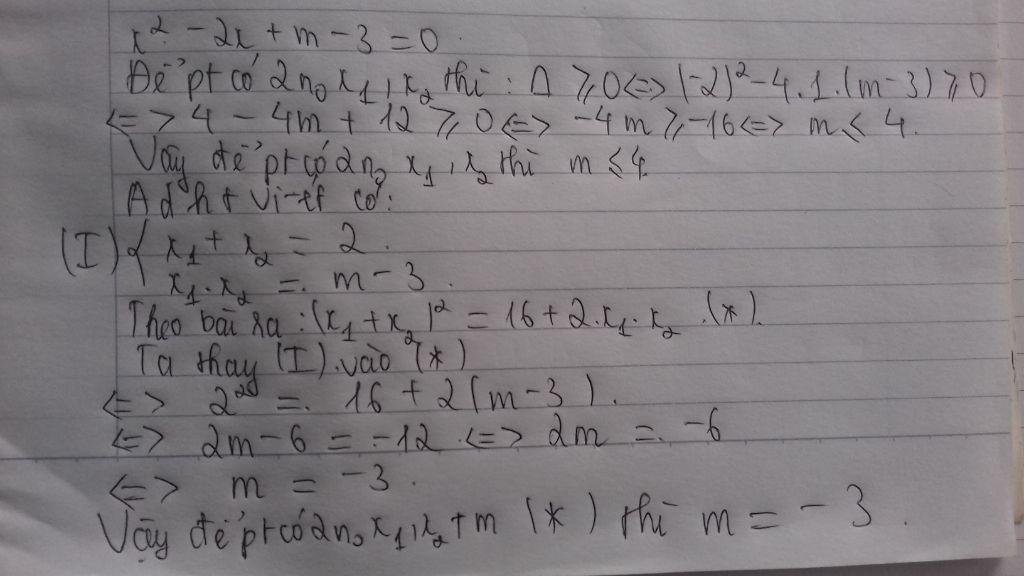 x² - 2x + m - 3 = 0.
Để pt có 2 n₀ x₁, x₂ thì : Δ ≥ 0 <=> (-2)² - 4.1.(m-3) ≥ 0
<=> 4 - 4m + 12 ≥ 0 <=> -4m ≥ -16 <=> m ≤ 4.
Vậy để pt có 2 n₀ x₁, x₂ thì m ≤ 4.
Adht Vi-ét có:
(I) { x₁ + x₂ = 2.
x₁.x₂ = m - 3.
Theo bài ra : (x₁ + x₂)² = 16 + 2.x₁.x₂ .(*).
Ta thay (I) vào (*)
<=> 2² = 16 + 2(m-3).
<=> 2m - 6 = -12 <=> 2m = -6
<=> m = -3.
Vậy để pt có 2 n₀ x₁, x₂ tm (*) thì m = -3.